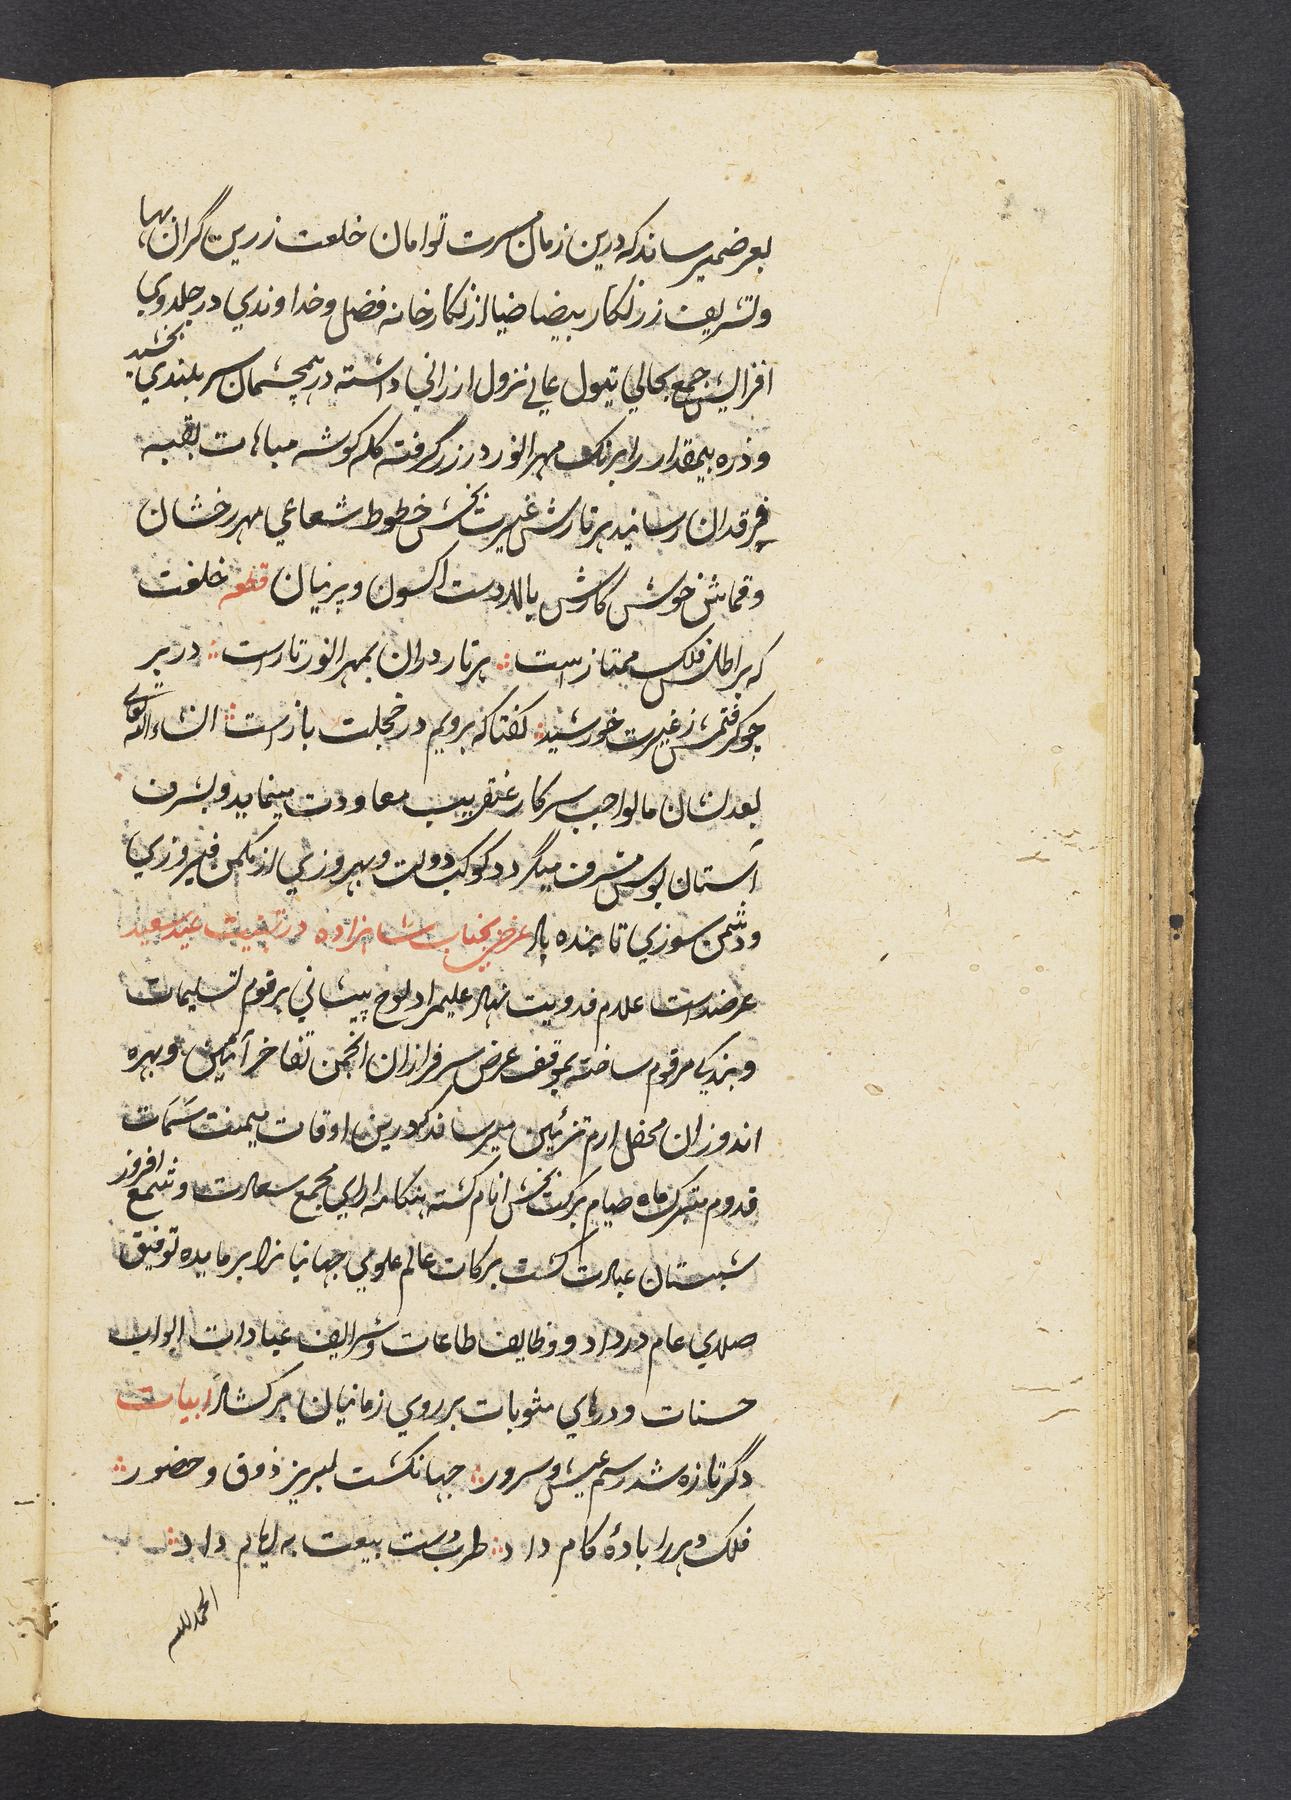 بعرض میرساند که درین زمان مسرت توامان خلعت زرین گران بها
و تشریف زرنکار بیضا ضیا از نکارخانه فضل و خداوندی در جلدوی
افزایش جمع بحالی تیول عالی نزول ارزانی داشته در همچشمان سربلندی بخشید
و ذره بیمقدار را برنک مهر انور در زر گرفته کله کوشه مباهات بقبه
فرقدان رسانید هر تارش غیرت بخش خطوط شعاعی مهر رخشان
و قماش خوش کارش پا لادست اکسون و پرنیان قطعه خلعت
که بر اطلس فلک ممتاز است هر تار دران بمهر انور تار است در بر
چو کرفتمش ز غیرت خورشید کفتا که برویم در خجلت باز است انشاءالله تعالی
بعد نشان مالواجب سرکار عنقریب معاودت مینماید و بشرف
آستان بوس مشرف میگردد کوکب دولت و بهروزی از مکمن فیروزی
و دشمن سوزی تابنده باد عرض بجناب شاهزاده در تهنیت عید سعید
عرضداشت غلام فدویت نهاد علیمراد لوح پیشانی برقوم تسلیمات
و بندکی مرقوم ساخته بموقف عرض سرفرازان انجمن تفاخر آئین و بهره
اندوزان محفل ارم تزئین میرساند که درین اوقات میمنت سمات
قدوم متبرک ماه صیام برکت بخش انام کشته هنکامه ارای مجمع سعادت و شمع افروز
شبستان عبادت کشت برکات عالم علوی جهانیانرا بر مایده توفیق
صلای عام در داد و وظایف طاعات و شرایف عبادات ابواب
حسنات و درهای مثوبات بر روی زمانیان بر کشاد ابیات
دگر تازه شد رسم عیش و سرور جهان کشت لبریز ذوق و حضور
فلک دهر را بادهٔ کام داد طرب دست بیعت به ایام داد
الحمدلله